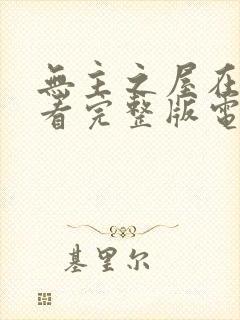 無主之屋在
看完整版電
基里尔